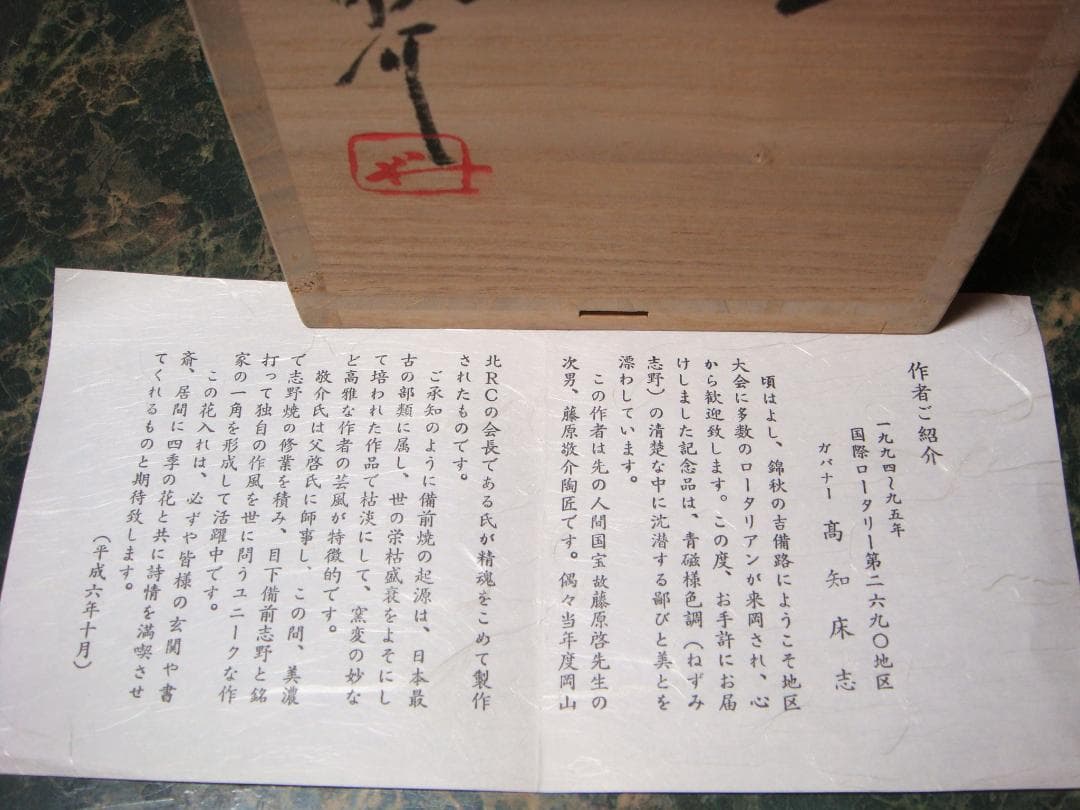 作者ご紹介
一九九四~九五年
国際ロータリー第二六九〇地区
ガバナー 髙知床志
頃はよし、錦秋の吉備路にようこそ地区
大会に多数のロータリアンが来岡され、心
から歓迎致します。この度、お手許にお届
けしました記念品は、青磁様色調(ねずみ
志野)の清楚な中に沈潜する鄙びと美とを
漂わしています。
この作者は先の人間国宝故藤原啓先生の
次男、藤原敬介陶匠です。偶々当年度岡山
北RCの会長である氏が精魂をこめて製作
されたものです。
ご承知のように備前焼の起源は、日本最
古の部類に属し、世の栄枯盛衰をよそにし
て培われた作品で枯淡にして、窯変の妙な
ど高雅な作者の芸風が特徴的です。
敬介氏は父啓氏に師事し、この間、美濃
で志野焼の修業を積み、目下備前志野と銘
打って独自の作風を世に問うユニークな作
家の一角を形成して活躍中です。
この花入れは、必ずや皆様の玄関や書
斎、居間に四季の花と共に詩情を満喫させ
てくれるものと期待致します。
(平成六年十月)